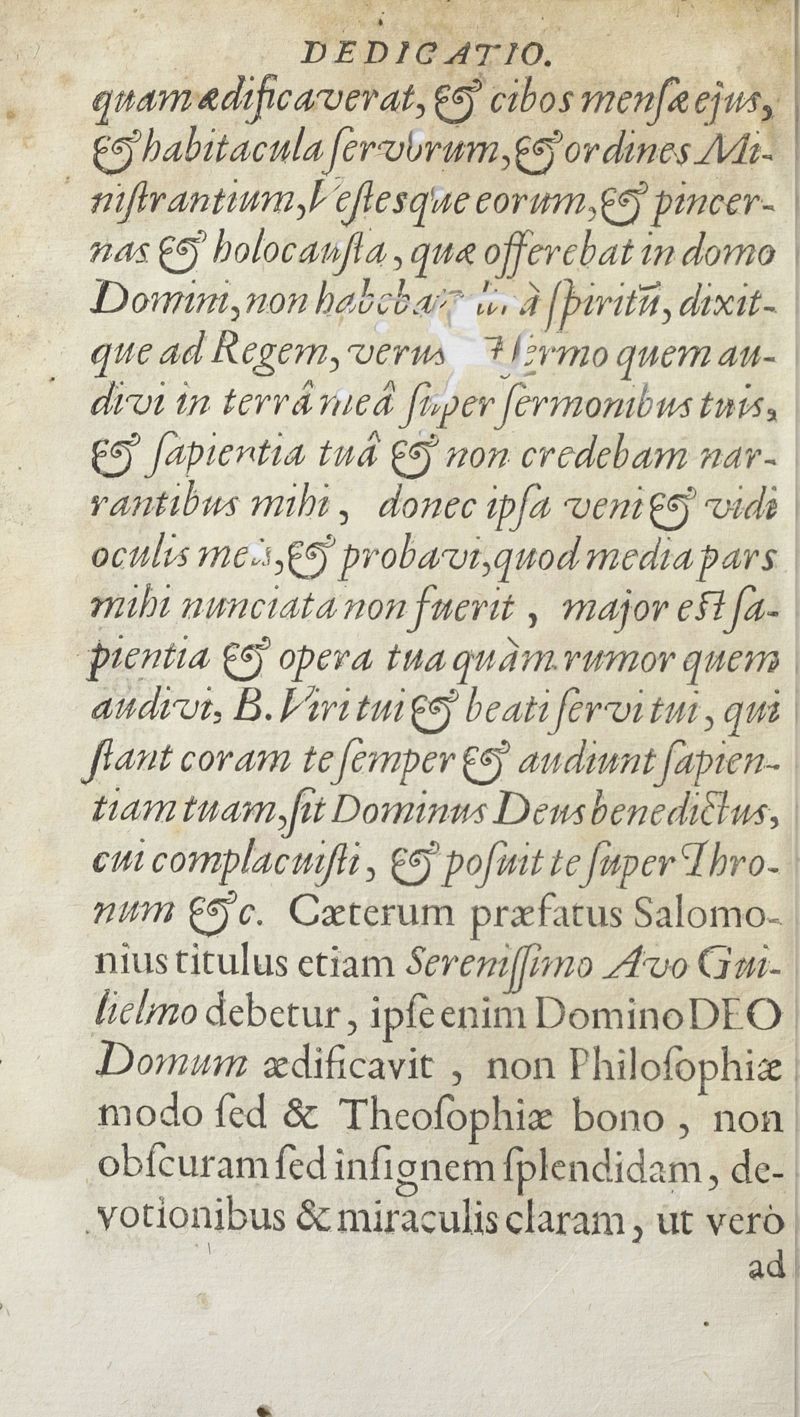 DEDICATIO.
quam ædificaverat, & cibos mensæ ejus,
& habitacula servorum, & ordines Mi-
nistrantium, Vestesque eorum, & pincer-
nas & holocausta, quæ offerebat in domo
Domini, non à spiritū, dixit-
que ad Regem, verus sermo quem au-
divi in terrâ meâ super sermonibus tuis,
& sapientia tuâ & non credebam nar-
rantibus mihi, donec ipsa veni & vidi
oculis meis, & probavi, quod media pars
mihi nunciata non fuerit, major est sa-
pientia & opera tua quàm rumor quem
audivi, B. Viri tui & beati servi tui, qui
stant coram te semper & audiunt sapien-
tiam tuam, sit Dominus Deus benedictus,
cui complacuisti, & posuit te super Thro-
num &c. Cæterum præfatus Salomo-
nius titulus etiam Serenissimo Avo Gui-
lielmo debetur, ipse enim Domino DEO
Domum ædificavit, non Philosophiæ
modo sed & Theosophiæ bono, non
obscuram sed insignem splendidam, de-
votionibus & miraculis claram, ut verò
ad